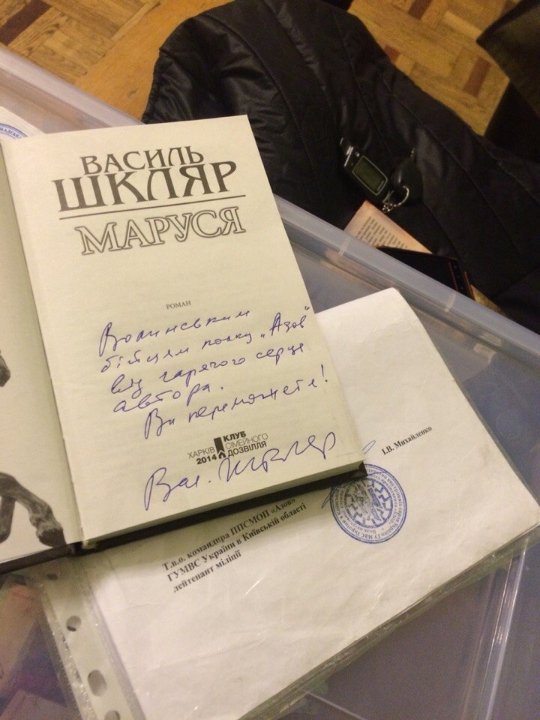 ВАСИЛЬ
ШКЛЯР
МАРУСЯ
РОМАН
Волинським
бійцям полку „Азов"
від гарячого серця
автора.
Ви переможете!
ХАРКІВ
2014
КЛУБ
СІМЕЙНОГО
ДОЗВІЛЛЯ
Вас. Шкляр
І.В. Михайленко
Т.в.о. командира ППСМОП «Азов»
ГУМВС України в Київській області
лейтенант міліції